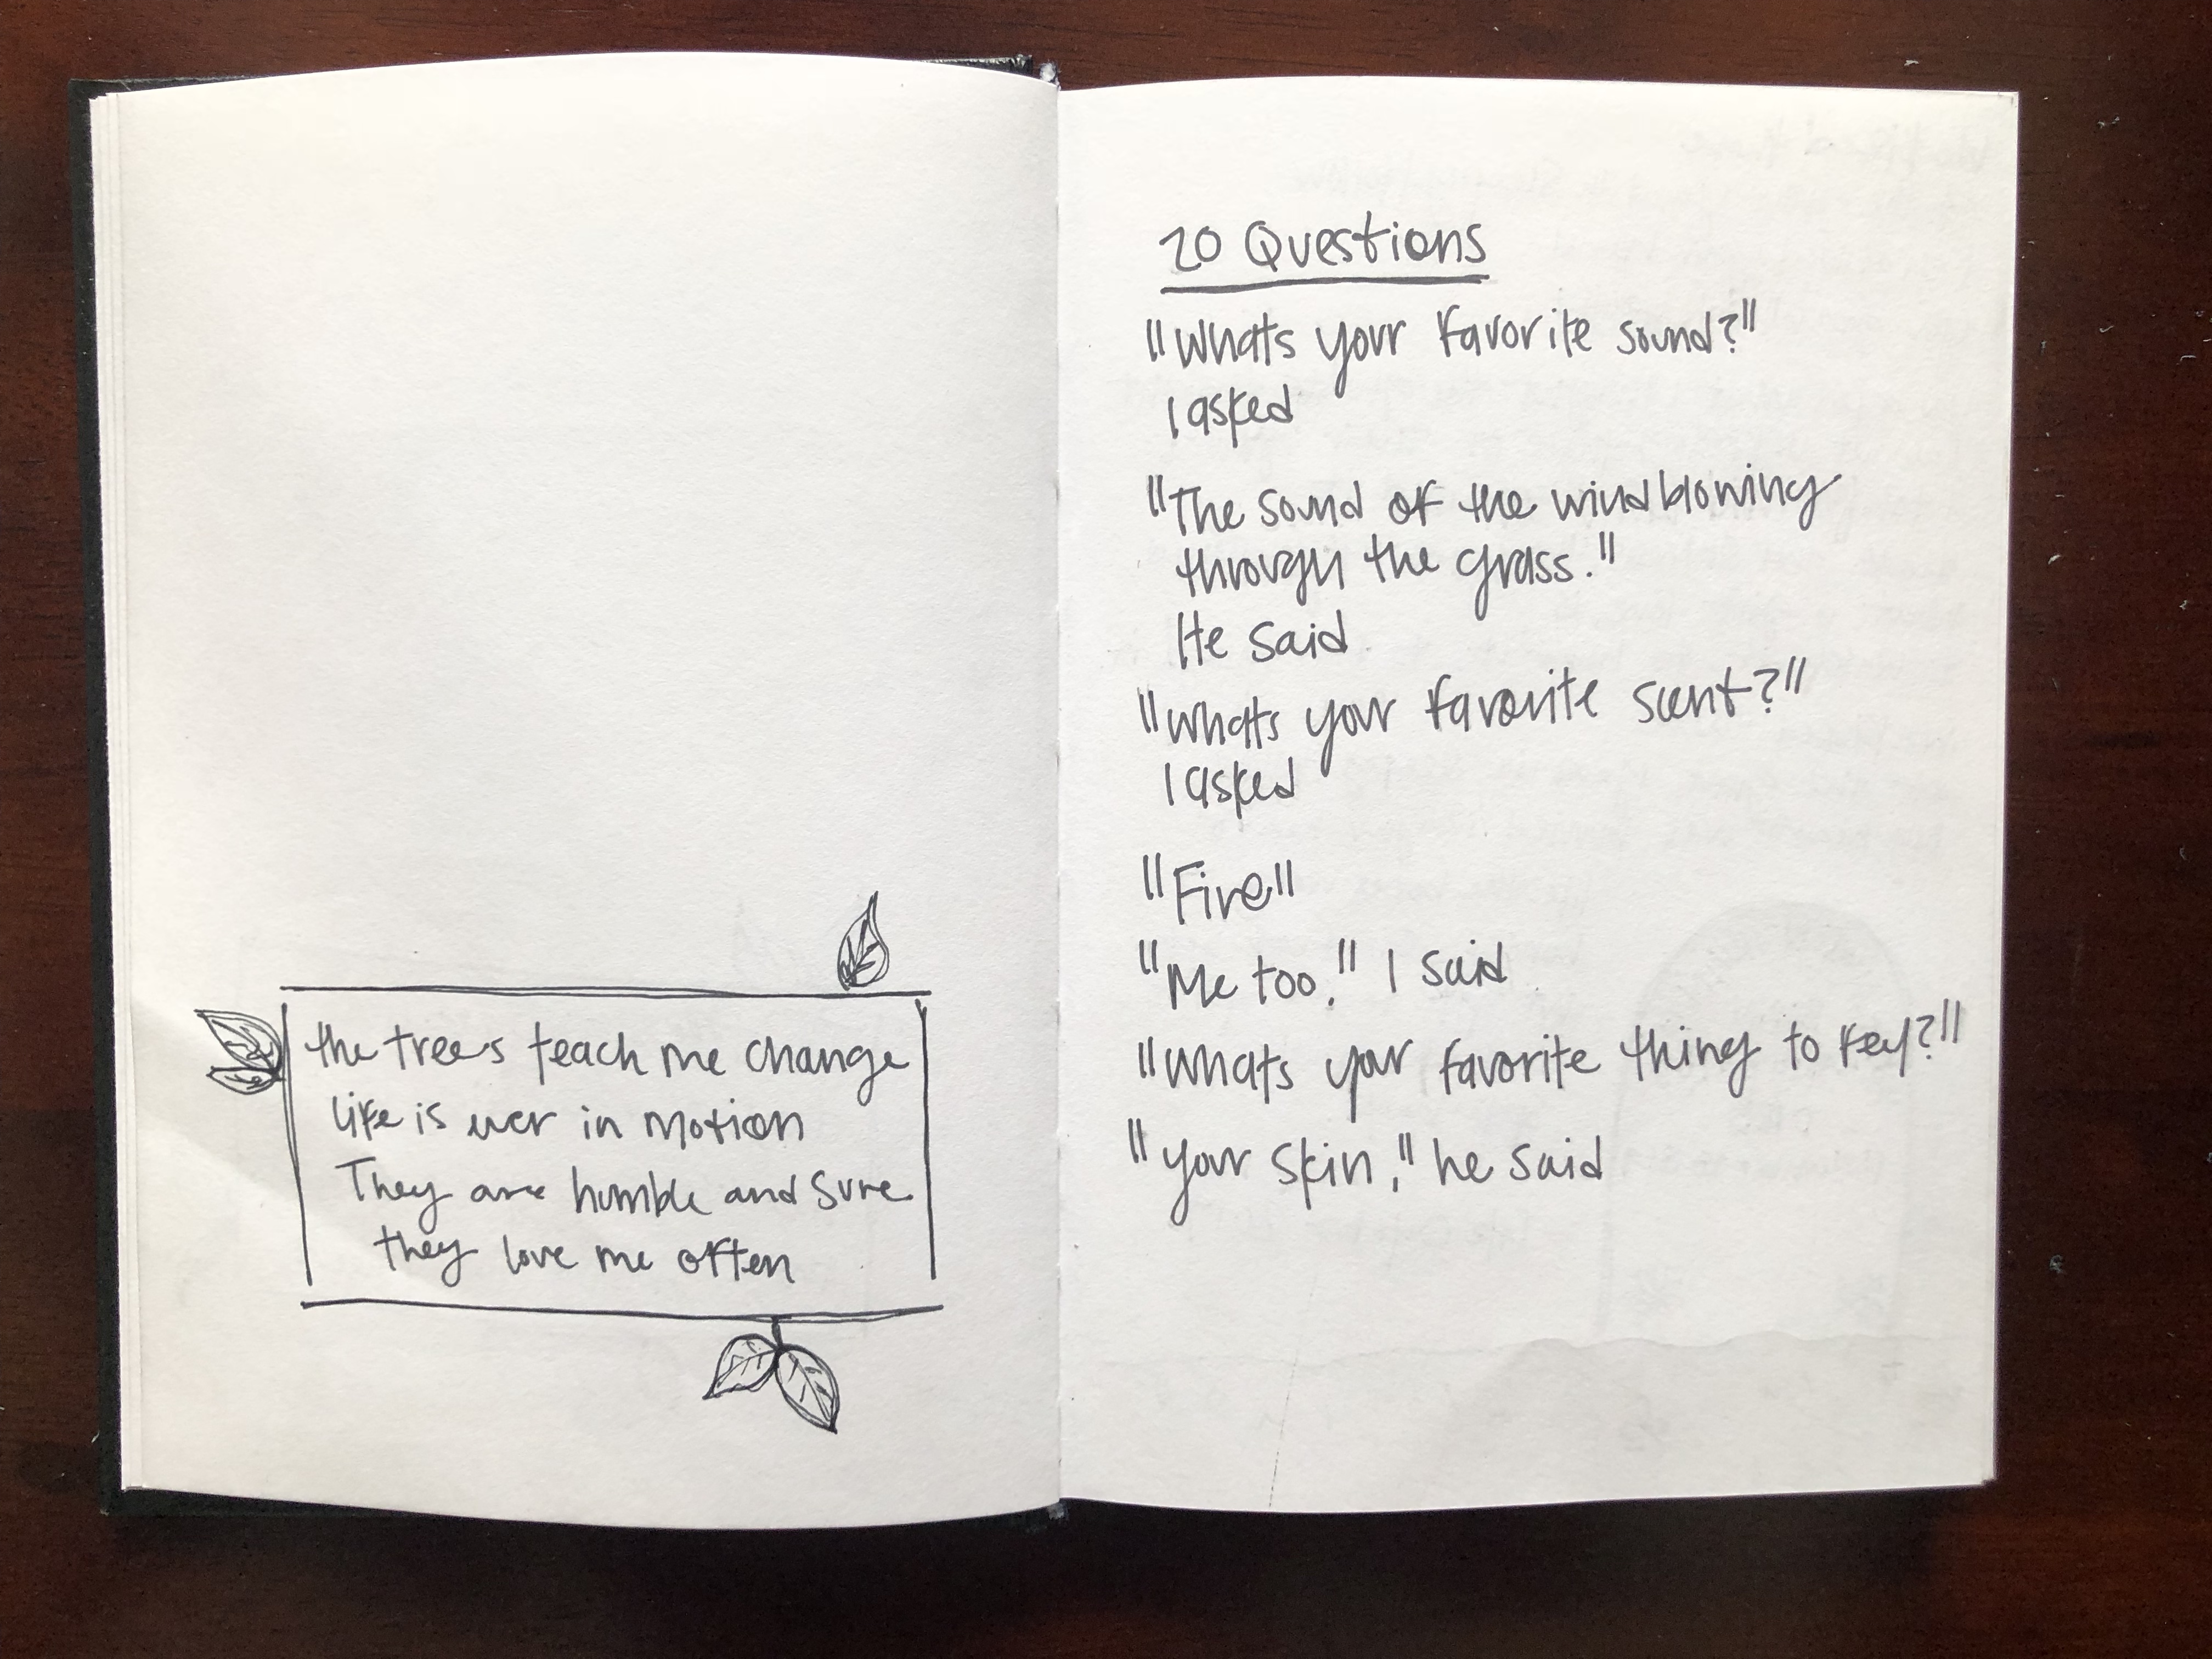 the trees teach me change
Life is ever in motion
They are humble and sure
they love me often
20 Questions
"Whats your favorite sound?"
I asked
"The sound of the wind blowing
through the grass."
He said
"Whats your favorite scent?"
I asked
"Fire"
"Me too," I said
"Whats your favorite thing to feel?"
"your skin," he said